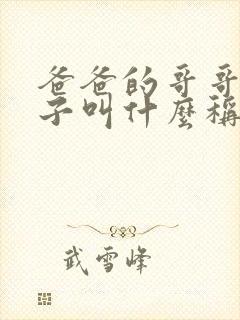 爸爸的哥哥
子叫什麼稱
武雪峰